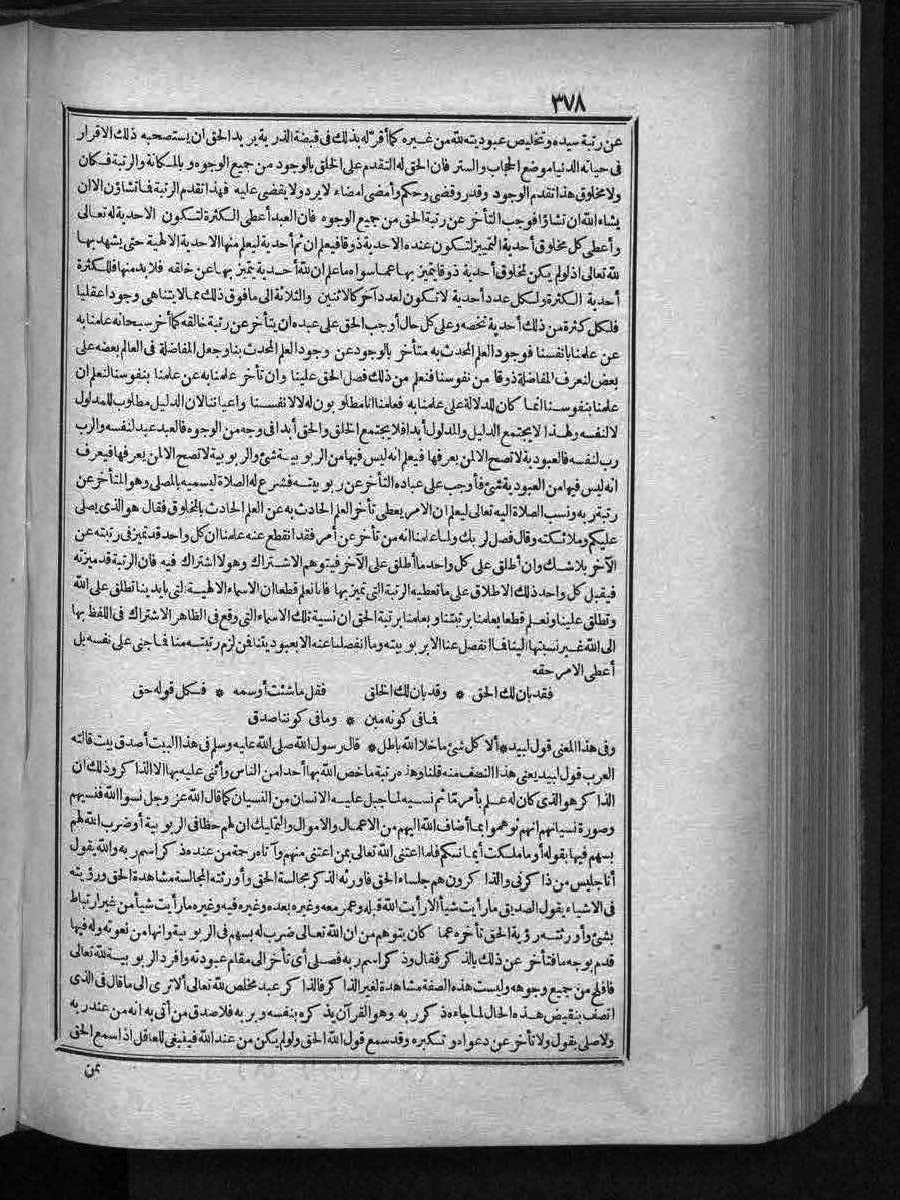 ٣٧٨
عن رتبة سيده وتخليص عبوديته لله من غيره كما أقرّ له بذلك فى قبضة الذرية يريد الحق ان يستصحبه ذلك الاقرار
فى حياته الدنيا موضع الحجاب والستر فان الحق له التقدم على الخلق بالوجود من جميع الوجوه وبالمكانة والرتبة فكان
ولا مخلوق هذا تقدم الوجود وقدر وقضى وحكم وأمضى امضاء لا يرد ولا يقضى عليه فهذا تقدم الرتبة فما تشاؤن الا ان
يشاء الله ان تشاؤا فوجب التأخر عن رتبة الحق من جميع الوجوه فان العبد أعطى الكثرة لتكون الاحدية له تعالى
وأعطى كل مخلوق أحدية التمييز لتكون عنده الاحدية ذوقا فيعلم ان ثم أحدية ليعلم منها الاحدية الالهية حتى يشهد بها
لله تعالى اذ لو لم يكن لمخلوق أحدية ذوقا يتميز بها عما سواه ما علم ان لله أحدية يتميز بها عن خلقه فلا بد منها فللكثرة
أحدية الكثرة ولكل عدد أحدية لا تكون لعدد آخر كالاثنين والثلاثة الى ما فوق ذلك مما لا يتناهى وجودا عقليا
فلكل كثرة من ذلك أحدية تخصه وعلى كل حال أوجب الحق على عبده ان يتأخر عن رتبة خالقه كما أخر سبحانه علمنا به
عن علمنا بانفسنا فوجود العلم المحدث به متأخر بالوجود عن وجود العلم المحدث بنا وجعل المفاضلة فى العالم بعضه على
بعض لنعرف المفاضلة ذوقا من نفوسنا فنعلم من ذلك فصل الحق علينا وان تأخر علمنا به عن علمنا بنفوسنا لنعلم ان
علمنا بنفوسنا انما كان للدلالة على علمنا به فعلمنا انا مطلوبون له لا لانفسنا واعياننا لان الدليل مطلوب للمدلول
لا لنفسه ولهذا لا يجتمع الدليل والمدلول أبدا فلا يجتمع الخلق والحق أبدا فى وجه من الوجوه فالعبد عبد لنفسه والرب
رب لنفسه فالعبودية لا تصح الا لمن يعرفها فيعلم انه ليس فيها من الربوبية شئ والربوبية لا تصح الا لمن يعرفها فيعرف
انه ليس فيها من العبودية شئ فأوجب على عباده التأخر عن ربوبيته فشرع له الصلاة ليسميه بالمصلى وهو المتأخر عن
رتبة ربه ونسب الصلاة اليه تعالى ليعلم ان الامر يعطى تأخر العلم الحادث به عن العلم الحادث بالمخلوق فقال هو الذى يصلى
عليكم وملائكته وقال فصل لربك ولما علمنا انه من تأخر عن أمر فقد انقطع عنه علمنا ان كل واحد قد تميز فى رتبته عن
الآخر بلا شك وان أطلق على كل واحد ما أطلق على الآخر فيتوهم الاشتراك وهو لا اشتراك فيه فان الرتبة قد ميزته
فيقبل كل واحد ذلك الاطلاق على ما تعطيه الرتبة التى تميز بها فانا نعلم قطعا ان الاسماء الالهية التى بايدينا تطلق على الله
وتطلق علينا ونعلم قطعا بعلمنا برتبتنا وبعلمنا برتبة الحق ان نسبة تلك الاسماء التى وقع فى الظاهر الاشتراك فى اللفظ بها
الى الله غير نسبتها الينا فما انفصل عنا الا بربوبيته وما انفصلنا عنه الا بعبوديتنا فمن لزم رتبته منا فما جنى على نفسه بل
أعطى الامر حقه
فقد بان لك الحق * وقد بان لك الخلق فقل ما شئت أو سمه * فكل قوله حق
فما فى كونه مين * وما فى كوننا صدق
وفى هذا المعنى قول لبيد * ألا كل شئ ما خلا الله باطل * قال رسول الله صلى الله عليه وسلم فى هذا البيت أصدق بيت قالته
العرب قول لبيد يعنى هذا النصف منه قلنا وهذه رتبة ما خص الله بها أحدا من الناس وأثنى عليه بها الا الذاكر وذلك ان
الذاكر هو الذى كان له علم بأمر مّا ثم نسيه لما جبل عليه الانسان من النسيان كما قال الله عز وجل نسوا الله فنسيهم
وصورة نسيانهم انهم توهموا بما أضاف الله اليهم من الاعمال والاموال والتمليك ان لهم حظا فى الربوبية أو ضرب الله لهم
بسهم فيها بقوله أو ما ملكت أيمانكم فلما اعتنى الله تعالى بمن اعتنى منهم وآتاه رحمة من عنده ذكر اسم ربه والله يقول
أنا جليس من ذكرنى والذاكرون هم جلساء الحق فاورثه الذكر مجالسة الحق وأورثته المجالسة مشاهدة الحق ورؤيته
فى الاشياء يقول الصديق ما رأيت شيأ الا رأيت الله قبله وعمر معه وغيره بعده وغيره فيه وغيره ما رأيت شيأ من غير ارتباط
بشئ وأورثته رؤية الحق تأخره عما كان يتوهم من ان الله تعالى ضرب له بسهم فى الربوبية وانها من نعوته وله فيها
قدم بوجه ما فتأخر عن ذلك بالذكر فقال وذكر اسم ربه فصلى أى تأخر الى مقام عبودته وافرد الربوبية لله تعالى
فافلح من جميع وجوهه وليست هذه الصفة مشاهدة لغير الذاكر فالذاكر عبد مخلص لله تعالى ألا ترى الى ما قال فى الذى
اتصف بنقيض هذه الحال لما جاءه ذكر ربه وهو القرآن يذكره بنفسه وبربه فلا صدق من أتى به انه من عند ربه
ولا صلى يقول ولا تأخر عن دعواه وتكبره وقد سمع قول الله الحق ولو لم يكن من عند الله فينبغى للعاقل اذا سمع الحق
من